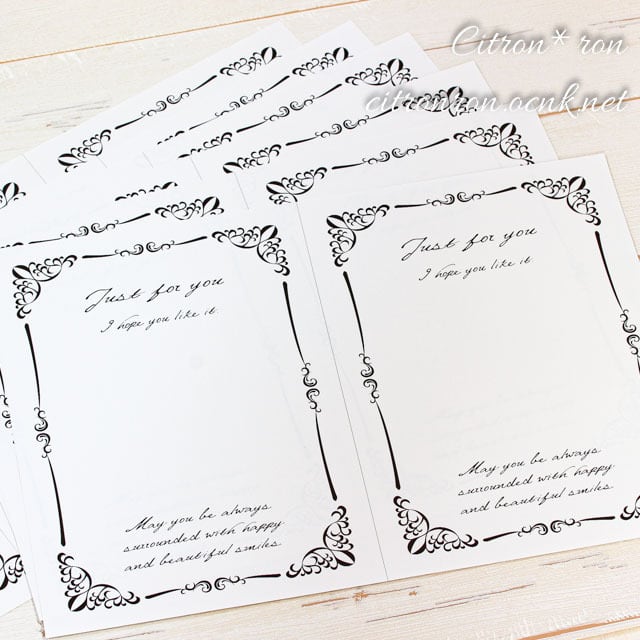 Citron* ron
citronron.ocnk.net
Just for you
I hope you like it.
May you be always
surrounded with happy
and beautiful smiles.
Just for you
I hope you like it.
May you be always
surrounded with happy
and beautiful smiles.